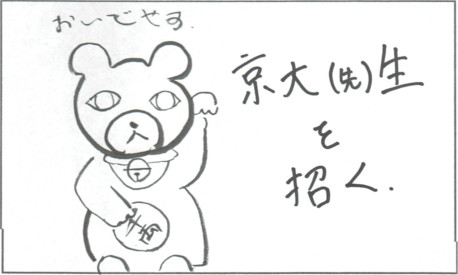 おいでやす.
京大(先)生
を
招く.